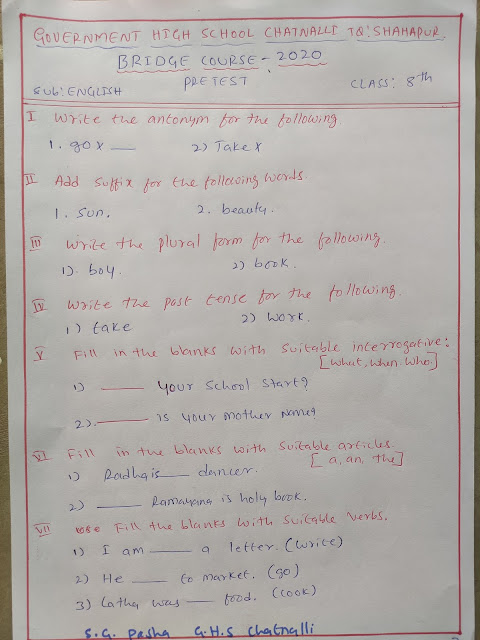 GOVERNMENT HIGH SCHOOL CHATNALLI TQ: SHAHAPUR
BRIDGE COURSE - 2020
PRETEST
SUB: ENGLISH CLASS: 8th
I Write the antonym for the following
1. go x ___ 2) Take x
II Add suffix for the following words.
1. sun. 2. beauty.
III Write the plural form for the following.
1). boy. 2) book.
IV Write the past tense for the following.
1) take 2) work.
V Fill in the blanks with suitable interrogative:
[what, when, who.]
1) ___ your school start?
2). ___ is your mother name?
VI Fill in the blanks with suitable articles.
[a, an, the]
1) Radha is ___ dancer.
2) ___ Ramayana is holy book.
VII Fill the blanks with suitable verbs.
1) I am ___ a letter. (write)
2) He ___ to market. (go)
3) Latha was ___ food. (cook)
S.G. Pasha G.H.S Chatnalli